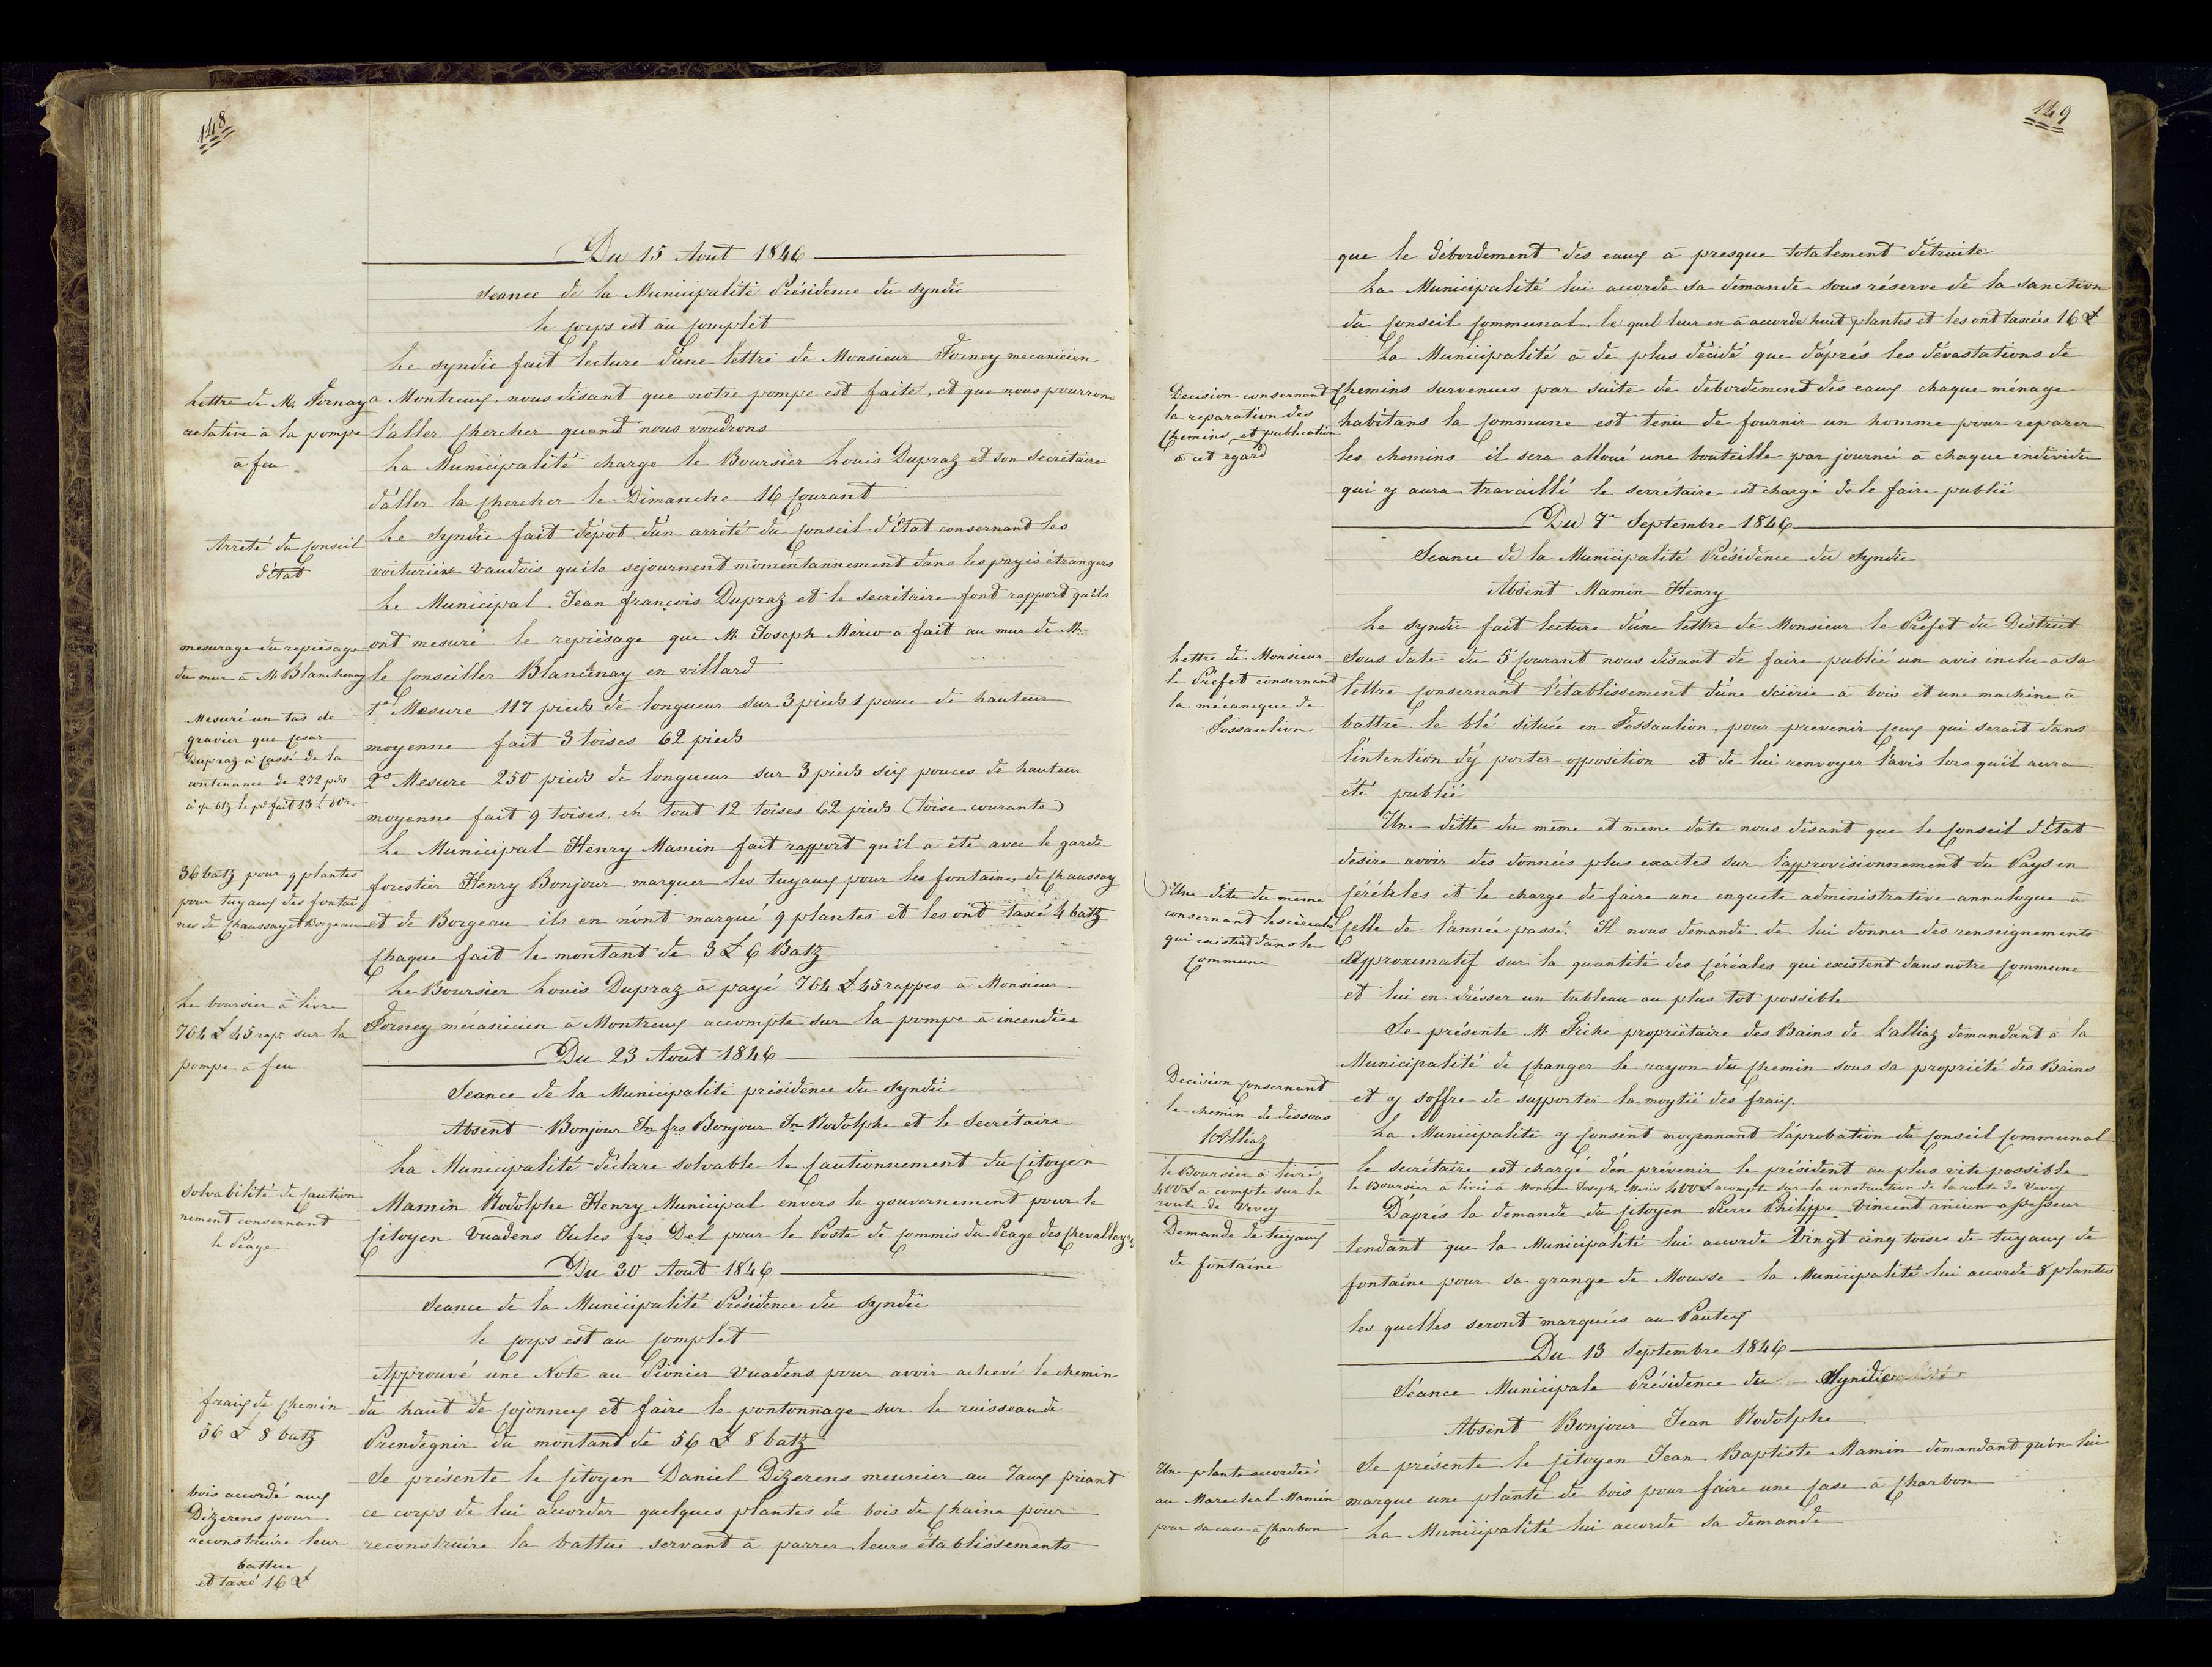 148
Du 15 Aout 1846
Seance de la Municipalité Présidence du Syndic
le corps est au complet
Le syndic fait lecture d'une lettre de Monsieur Forney mecanicien
Lettre de Mr Fornay
relative à la pompe
à feu
à Montreux, nous disant que nôtre pompe est faite, et que nous pourrons
l'aller chercher quand nous voudrons
La Municipalité charge le Boursier Louis Dupraz et son Secrétaire
d'aller la chercher le Dimanche 16 courant
Arreté du conseil
d'état
Le Syndic fait dépot d'un arrêté du Conseil d'état consernand les
voituriers Vaudois qu'ils sejournent momentannement dans les payis étrangers
Le Municipal Jean françois Dupraz et le secrétaire fond rapport qu'ils
mesurage du repiésage
du mur à Mr Blanchenay
ont mesuré le repiésage que Mr Joseph Mério à fait au mur de Mr
le conseiller Blanchnay en villard
Mesuré un tas de
gravier que
Dupraz à cassé de la
contenance de 272 pds
1er Mesure 117 pieds de longueur sur 3 pieds 1 pouce de hauteur
moyenne fait 3 toises 62 pieds
2e Mesure 250 pieds de longueur sur 3 pieds six pouces de hauteur
moyenne fait 9 toises, en tout 12 toises 62 pieds (toise courante)
Le Municipal Henry Mamin fait rapport qu'il à été avec le garde
36 batz pour 9 plantes
pour tuyaux des fontai
nes de Chaussay et Borgeau
forestier Henry Bonjour marquer les tuyaux pour les fontaines de Chaussay
et de Borgeau ils en n'ont marqué 9 plantes et les ont taxé 4 batz
chaque fait le montant de 3 £ 6 Batz
Le boursier à livré
764 £ 45 rap. sur la
pompe à feu
Le Boursier Louis Dupraz à payé 764 £ 45 rappes à Monsieur
Forney mécanicien à Montreux accompte sur la pompe à incendies
Du 23 Aout 1846
Seance de la Municipalité présidence du Syndic
Absent Bonjour Jn frs Bonjour Jn Rodolphe et le Secrétaire
La Municipalité déclare solvable le cautionnement du Citoyen
solvabilité de caution
nement consernand
le Péage
Mamin Rodolphe Henry Municipal envers le gouvernement pour le
Citoyen Vuadens Jules frs Del pour le Poste de commis du Péage des Chevalleyres
Du 30 Aout 1846
Seance de la Municipalité Présidence du Syndic
le corps est au complet
Approuvé une Note au Pionier Vuadens, pour avoir achevé le chemin
fraix de chemin
56 £ 8 batz
du haut de Cojonnex et faire le pontonnage sur le ruisseau de
Prendegnir du montand de 56 £ 8 batz
Se présente le Citoyen Daniel Dizerens meunier au Taux priant
bois accordé aux
Dizerens pour
reconstruire leur
battue
et taxé 16 £
ce corps de lui accorder quelques plantes de bois de chaine pour
reconstruire la battue servant à parrer leurs établissements
149
que le débordement des eaux à presque totalement détruite
La Municipalité lui accorde sa demande sous réserve de la sanction
du conseil communal. le quel leur en à accordé huit plantes et les ont taxées 16 £
La Municipalité à de plus décidé que d'aprés les dévastations de
Decision consernand
la reparation des
chemins, et publication
à cet égard
Chemins survenues par suite de debordement des eaux chaque ménage
habitans la commune est tenu de fournir un homme pour reparer
les chemins il sera alloué une bouteille par journée à chaque individu
qui y aura travaillé le secrétaire est chargé de le faire publié
Du 7e Septembre 1846
Seance de la Municipalité Présidence du Syndic
Absent Mamin Henry
Le Syndic fait lecture d'une lettre de Monsieur le Préfet du District
Lettre de Monsieur
le Préfet consernand
la mécanique de
Fossaulion
Sous date du 5 courant nous disant de faire publié un avis inclu à sa
lettre consernant l'établissement d'une scierie à bois et une machine à
battre le blé située en Fossaulion, pour prevenir ceux qui serait dans
l'intention d'y porter opposition et de lui renvoyer l'avis lors qu'il aura
été publié
Une ditte du même et même date nous disant que le conseil d'état
desire avoir des données plus exactes sur l'approvisionnement du Pays en
Une dite du même
consernand les céréales
qui existend dans la
commune
céréales et le charge de faire une enquete administrative annalogue à
celle de l'année passé. Il nous demande de lui donner des renseignements
Approximatif sur la quantité des céréales qui existend dans notre commune
et lui en drésser un tableau au plus tot possible
Se présente Mr Piche propriétaire des Bains de L'alliaz demandant à la
Decision consernand
le chemin de dessous
l'Alliaz
Municipalité de changer le rayon du chemin sous sa propriété des Bains
et y soffre de supporter la moytié des fraix.
La Municipalité y consent moyennant l'aprobation du conseil communal
le secrétaire est chargé d'en prévenir le président au plus vite possible
le Boursier à livré
400 £ à compte sur la
route de Vevey
le Boursier a livré à Monsieur Joseph Mario 400 £ acompte sur la construction de la route de Vevey
Demande de tuyaux
de fontaine
D'aprés la demande du citoyen Pierre Philippe Vincent ancien assesseur
tendant que la Municipalité lui accorde Vingt cinq toises de tuyaux de
fontaine pour sa grange de Mousse la Municipalité lui accorde 8 plantes
les quelles seront marquées au Pautex
Du 13 Septembre 1846
Séance Municipale Présidence du Syndic
Absent Bonjour Jean Rodolphe
Une plante accordée
au Marechal Mamin
pour sa case à charbon
Se présente le citoyen Jean Baptiste Mamin demandant qu'on lui
marque une plante de bois pour faire une case à charbon
La Municipalité lui accorde sa demande